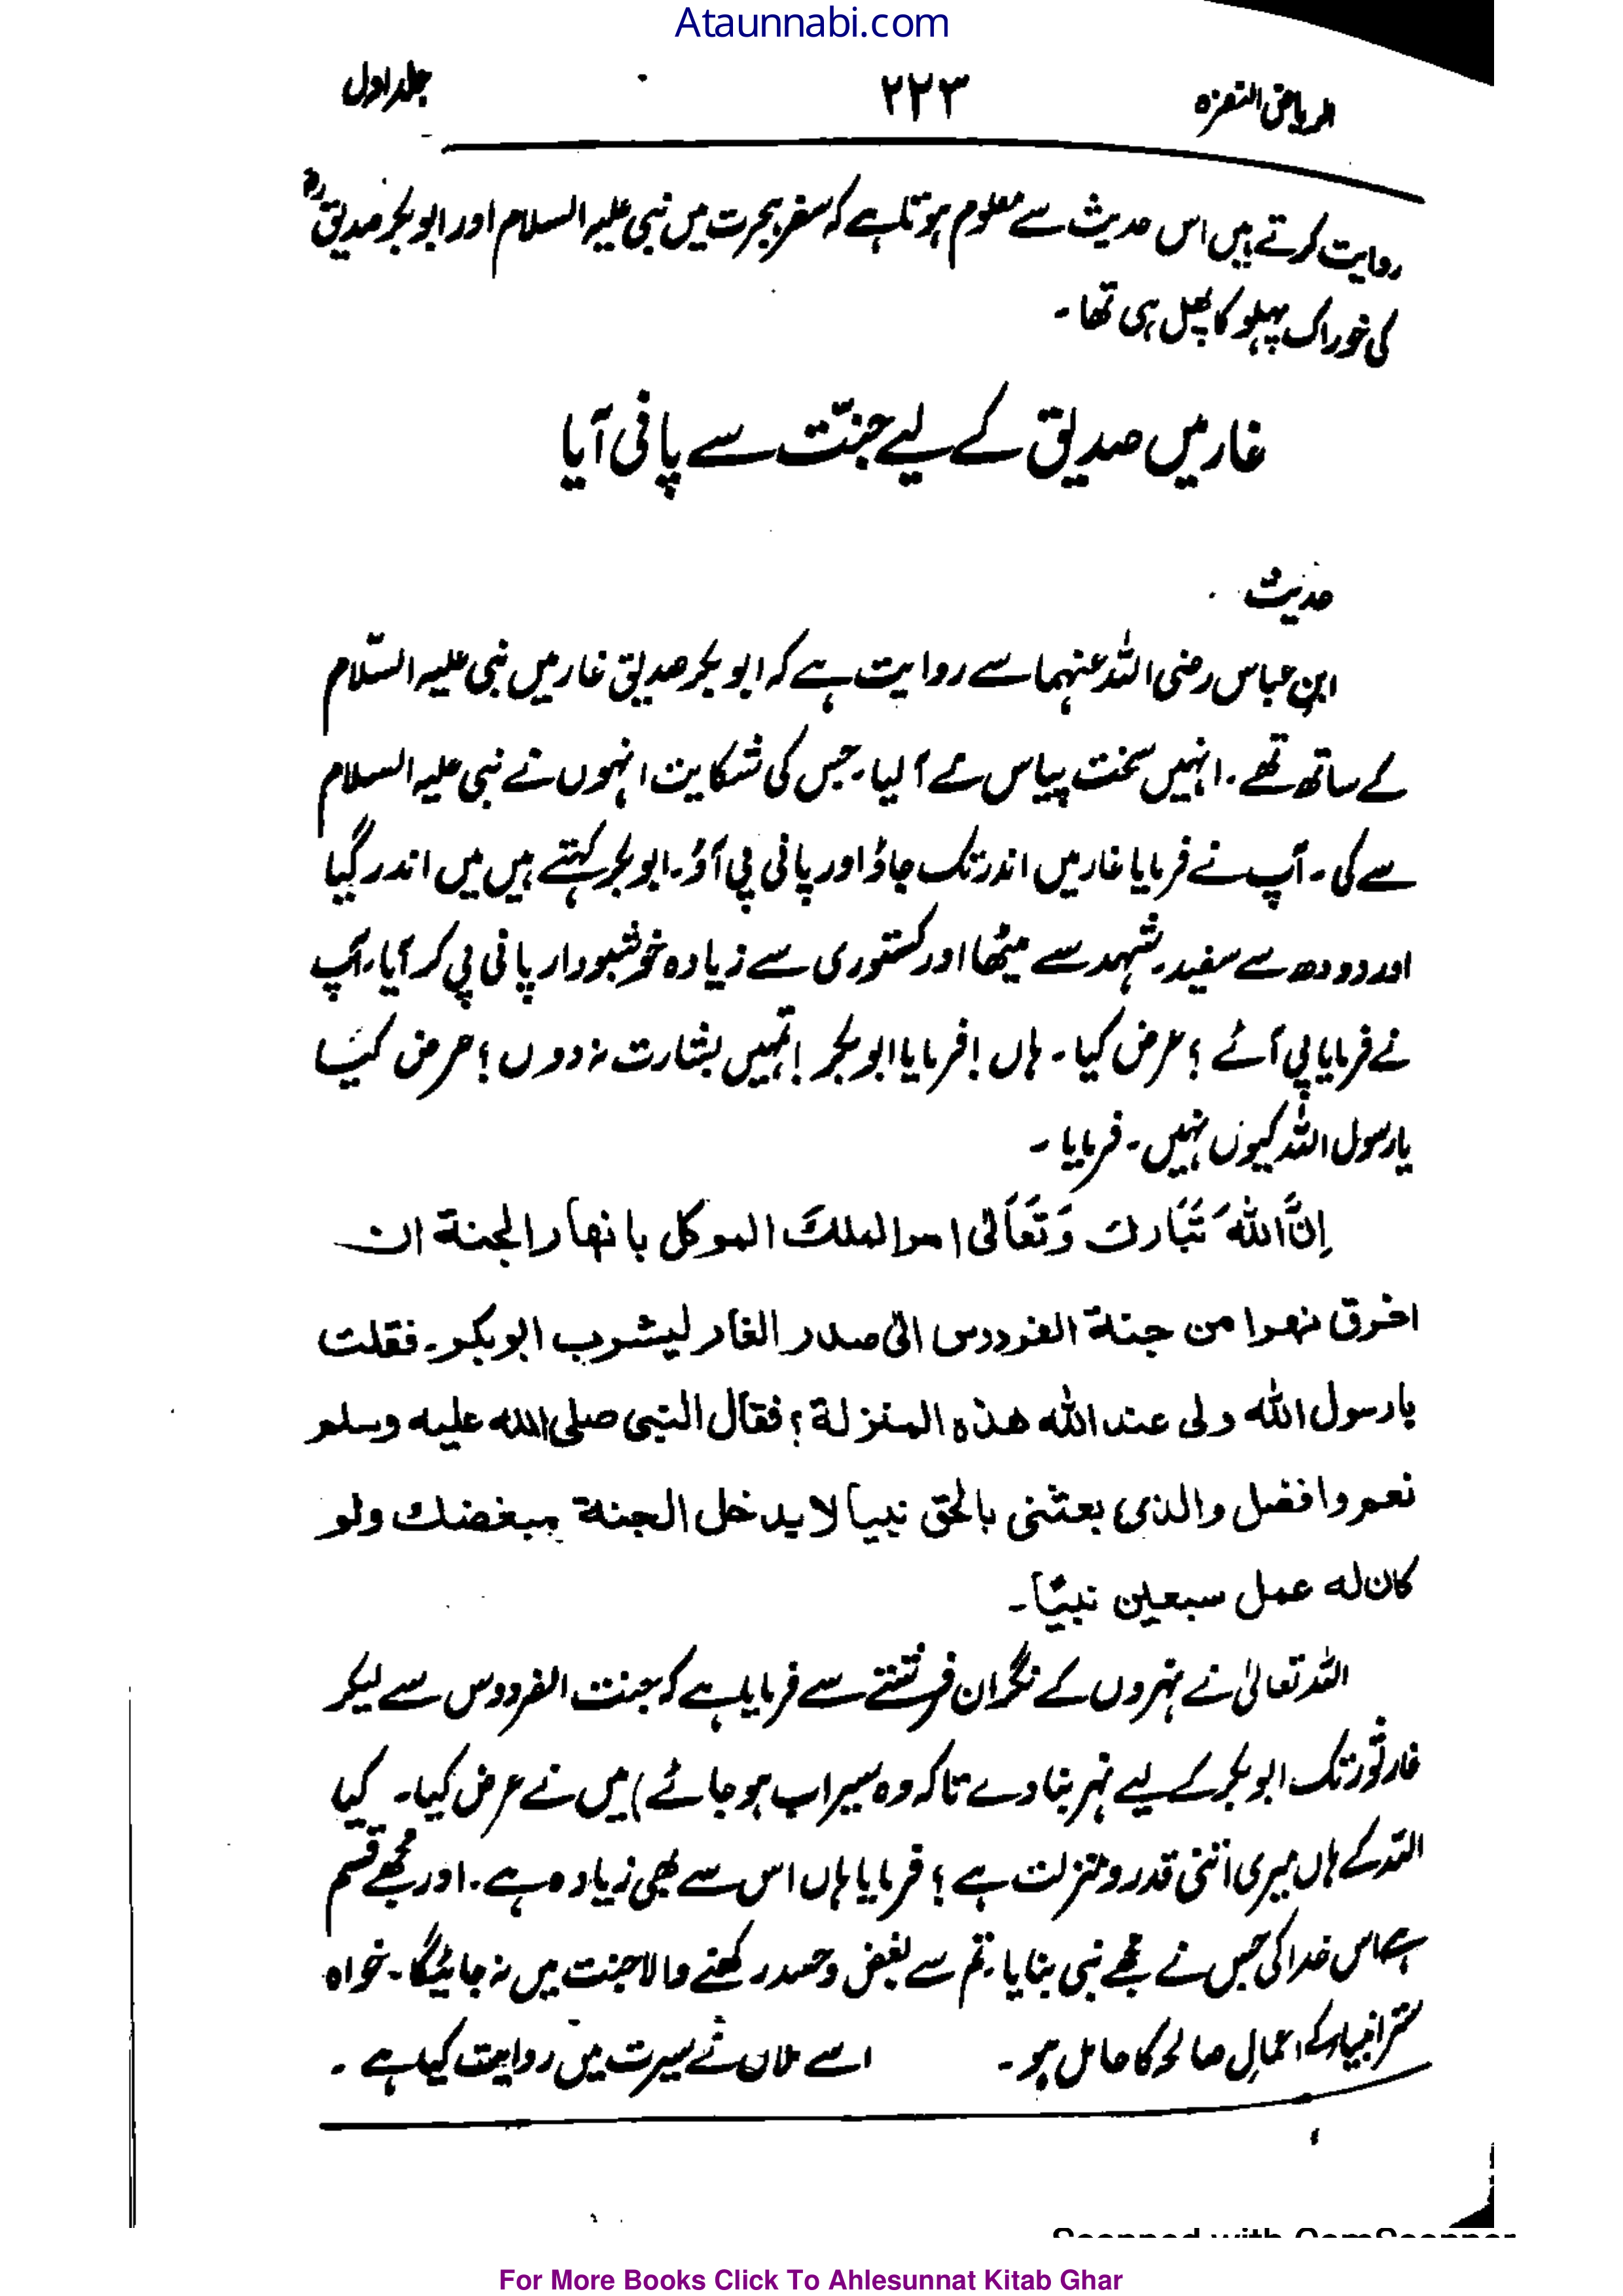 Ataunnabi.com
الریاض النضرہ ۲۲۳ جلد اول
روایت کرتے ہیں اس حدیث سے معلوم ہوتا ہے کہ سفر ہجرت میں نبی علیہ السلام اور ابوبکر صدیق رض
کی خوراک پیلو کا پھل ہی تھا۔
غار میں صدیق کے لیے جنّت سے پانی آیا
حدیث
ابن عباس رضی اللہ عنہما سے روایت ہے کہ ابوبکر صدیق غار میں نبی علیہ السّلام
کے ساتھ تھے۔ انہیں سخت پیاس نے آ لیا۔ جس کی شکایت انہوں نے نبی علیہ السلام
سے کی۔ آپ نے فرمایا غار میں اندر تک جاؤ اور پانی پی آؤ۔ ابوبکر کہتے ہیں میں اندر گیا
اور دودھ سے سفید۔ شہد سے میٹھا اور کستوری سے زیادہ خوشبودار پانی پی کر آیا۔ آپ
نے فرمایا پی آئے ؟ عرض کیا۔ ہاں ! فرمایا ابوبکر ! تمہیں بشارت نہ دوں ؟ عرض کیا
یا رسول اللہ کیوں نہیں۔ فرمایا۔
اِنَّ اللہَ تَبَارك وَتَعَالٰی امر الملكَ الموکل بانھار الجنة ان
اخرق نھرا من جنة الفردوس الیٰ صدر الغار لیشرب ابوبکر۔ فقلت
یا رسول اللہ ولی عند اللہ ھذہ المنزلة؟ فقال النبی صلی اللہ علیہ وسلم
نعم وافضل والذی بعثنی بالحق نبیا لا یدخل الجنة مبغضك ولو
کان له عمل سبعین نبیًا۔
اللہ تعالیٰ نے نہروں کے نگران فرشتے سے فرمایا ہے کہ جنت الفردوس سے لیکر
غار ثور تک ابوبکر کے لیے نہر بنا دے تاکہ وہ سیراب ہو جائے) میں نے عرض کیا۔ کیا
اللہ کے ہاں میری اتنی قدر و منزلت ہے ؟ فرمایا ہاں اس سے بھی زیادہ ہے۔ اور مجھے قسم
ہے اس خدا کی جس نے مجھے نبی بنایا۔ تم سے بغض و حسد رکھنے والا جنت میں نہ جائیگا۔ خواہ
ستر انبیاء کے اعمالِ صالحہ کا حامل ہو۔ اسے ملاں نے سیرت میں روایت کیا ہے۔
Scanned with CamScanner
For More Books Click To Ahlesunnat Kitab Ghar